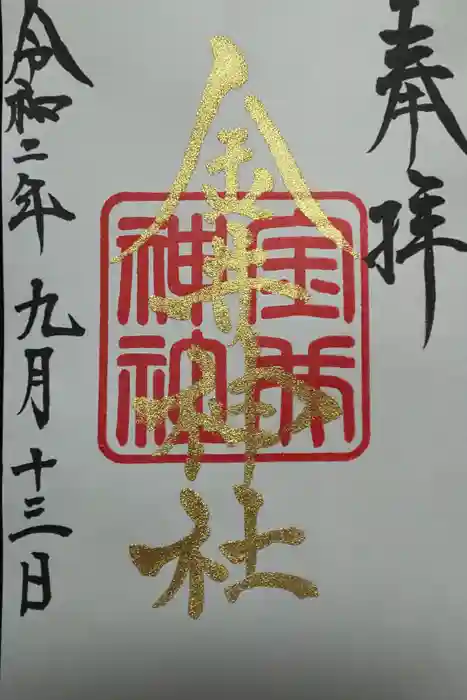 奉拝
金井神社
金井
神社
令和二年九月十三日